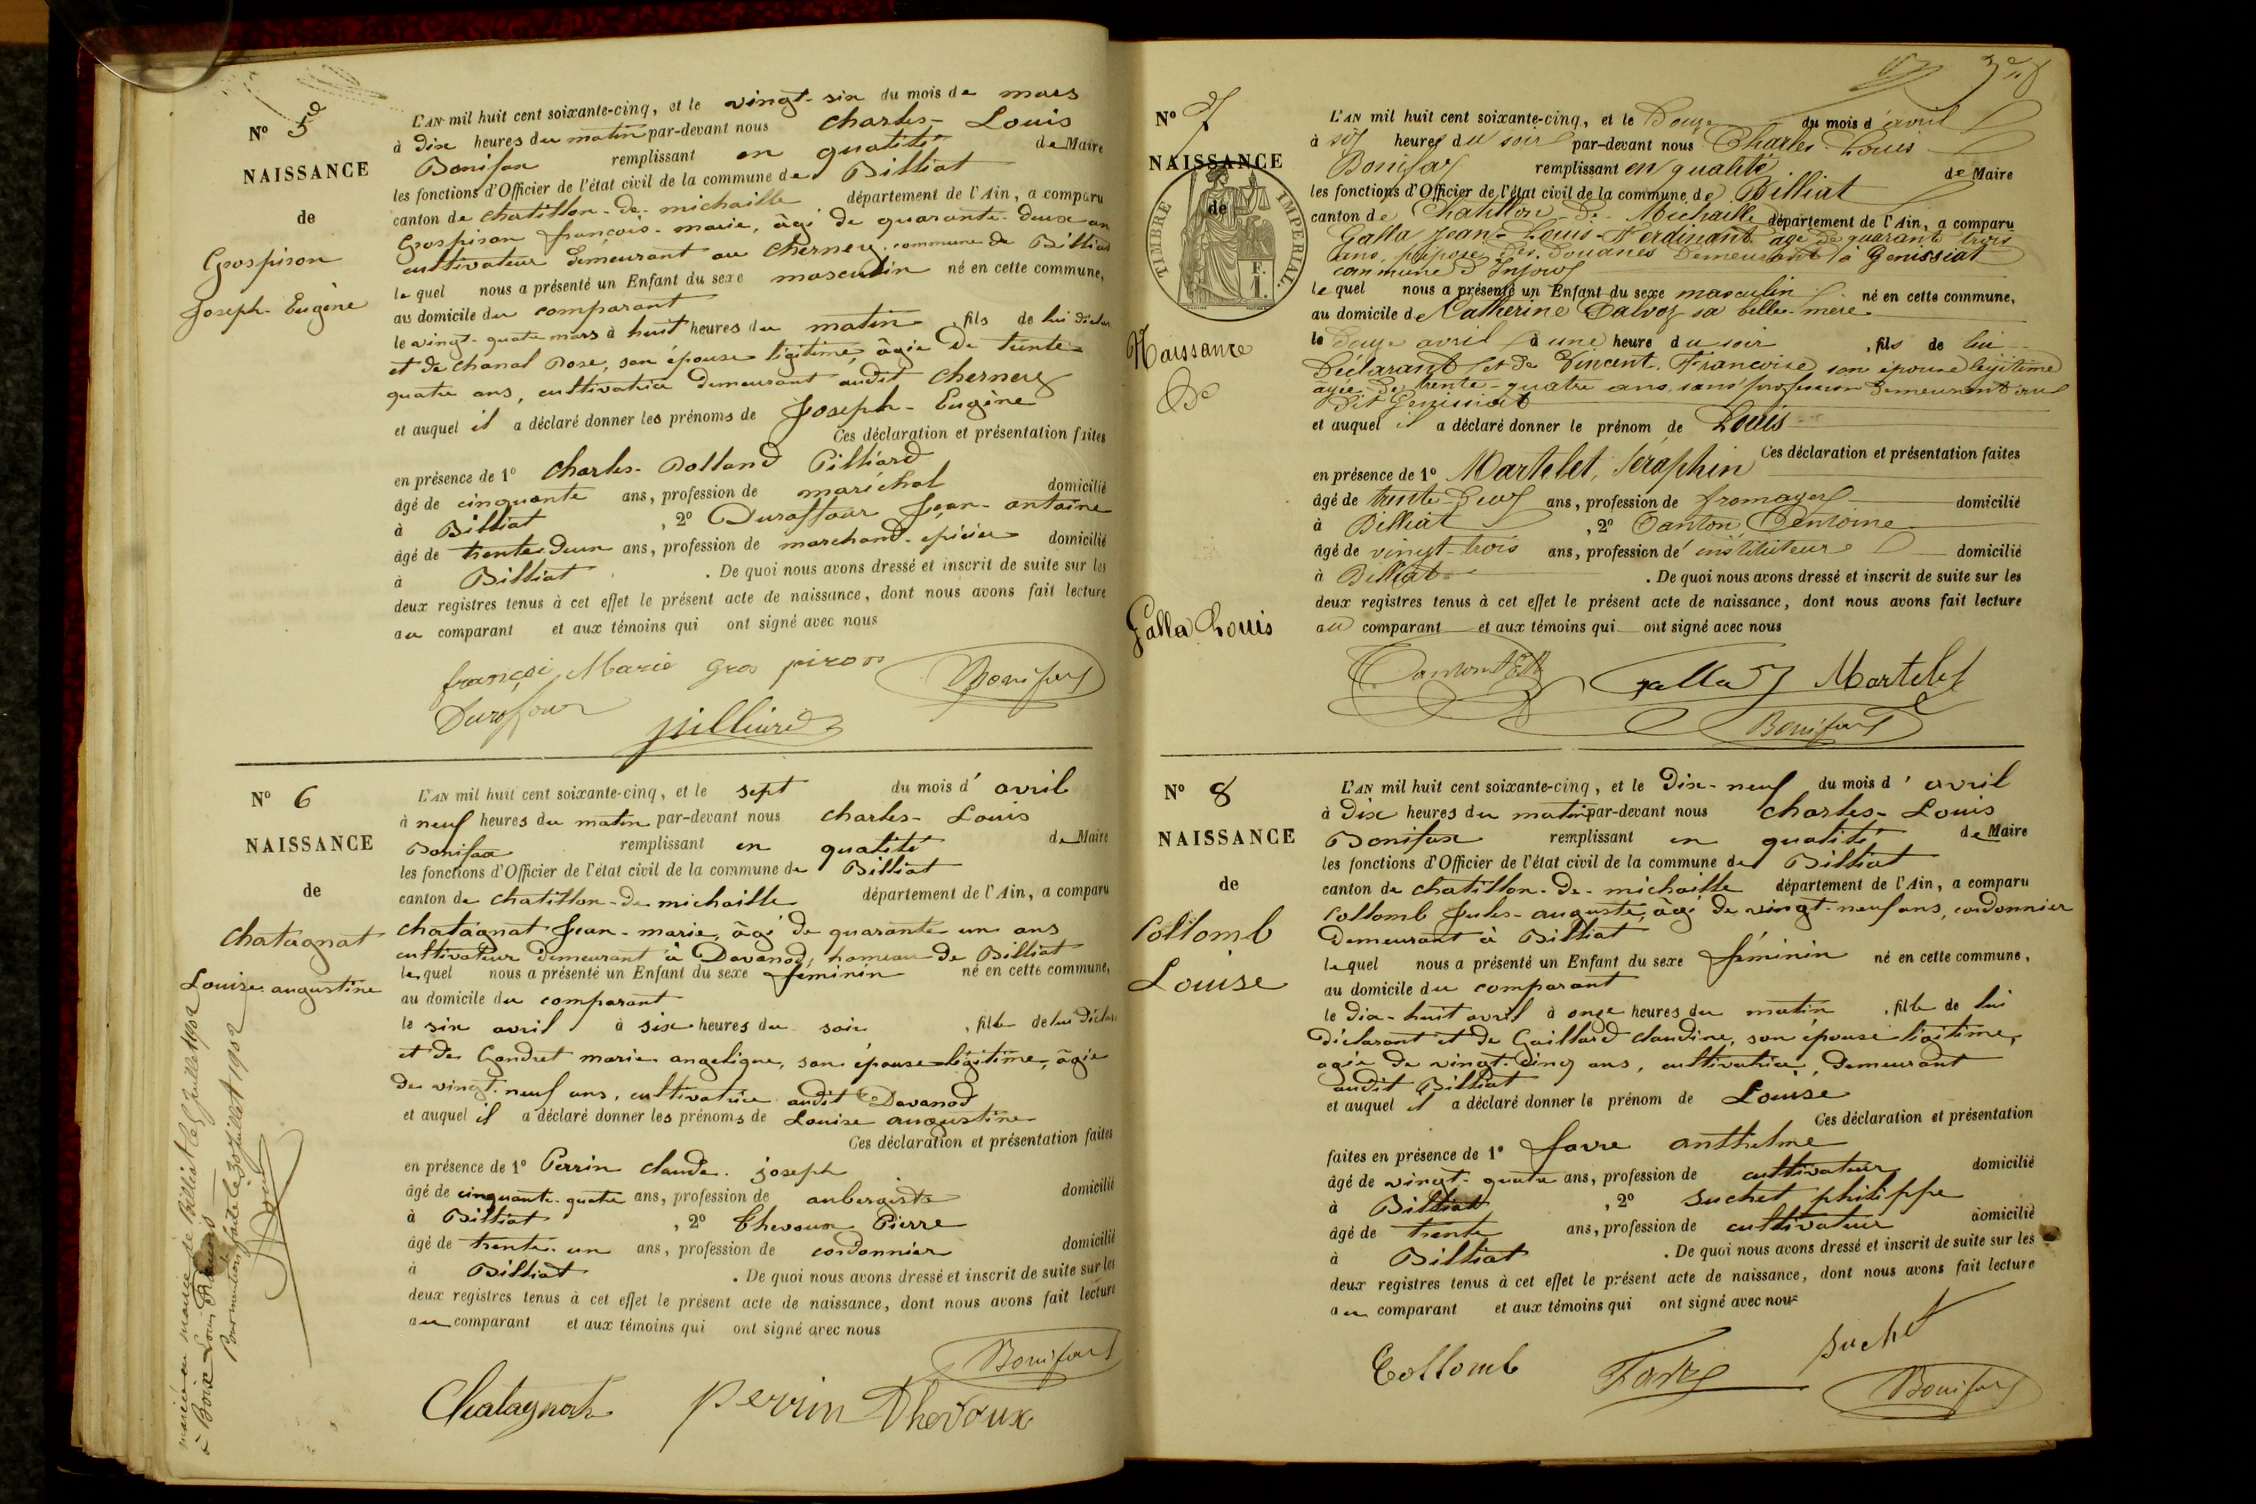 Nº 5e
NAISSANCE
de
Grospiron
Joseph-Eugène
L'AN mil huit cent soixante-cinq, et le vingt-six du mois de mars
à dix heures du matin par-devant nous Charles-Louis
Bonifax remplissant en qualité de Maire
les fonctions d'Officier de l'état civil de la commune de Billiat
canton de chatillon-de-michaille département de l'Ain, a comparu
Grospiron françois-marie, âgé de quarante-deux an
cultivateur demeurant au Cherney, commune de Billiat
lequel nous a présenté un Enfant du sexe masculin né en cette commune,
au domicile du comparant
le vingt-quatre mars à huit heures du matin fils de lui déclar
et de chanal Rose, son épouse légitime, âgée de trente
quatre ans, cultivatrice demeurant audit Cherney
et auquel il a déclaré donner les prénoms de Joseph-Eugène
Ces déclaration et présentation faites
en présence de 1º Charles-Rolland Pilliard
âgé de cinquante ans, profession de maréchal domicilié
à Billiat, 2º Duraffour Jean-antoine
âgé de trente-deux ans, profession de marchand-épicier domicilié
à Billiat. De quoi nous avons dressé et inscrit de suite sur les
deux registres tenus à cet effet le présent acte de naissance, dont nous avons fait lecture
au comparant et aux témoins qui ont signé avec nous
françoi Marie Gros piron Bonifax
Durafour pilliard
Nº 6
NAISSANCE
de
Chatagnat
Louise augustine
mariée en mairie de Billiat le juillet 1902
à Louis
Pour mention faite le 30 juillet 1902
L'AN mil huit cent soixante-cinq, et le sept du mois d'avril
à neuf heures du matin par-devant nous Charles-Louis
Bonifax remplissant en qualité de Maire
les fonctions d'Officier de l'état civil de la commune de Billiat
canton de chatillon-de-michaille département de l'Ain, a comparu
chatagnat Jean-marie, âgé de quarante un ans
cultivateur demeurant à Davanod, hameau de Billiat
lequel nous a présenté un Enfant du sexe féminin né en cette commune,
au domicile du comparant
le six avril à six heures du soir, fille de lui déclar
et de Gondret marie angelique, son épouse légitime, âgée
de vingt-neuf ans, cultivatrice audit Davanod
et auquel il a déclaré donner les prénoms de Louise augustine
Ces déclaration et présentation faites
en présence de 1º Perrin claude-joseph
âgé de cinquante-quatre ans, profession de aubergiste domicilié
à Billiat, 2º Thevoux Pierre
âgé de trente-un ans, profession de cordonnier domicilié
à Billiat. De quoi nous avons dressé et inscrit de suite sur les
deux registres tenus à cet effet le présent acte de naissance, dont nous avons fait lecture
au comparant et aux témoins qui ont signé avec nous
Bonifax
Chatagnat Perrin Thevoux
Nº 7
NAISSANCE
de
TIMBRE IMPÉRIAL
F.
1.
Naissance
De
Galla Louis
L'AN mil huit cent soixante-cinq, et le Douze du mois d'avril
à six heures du soir par-devant nous Charles-Louis
Bonifax remplissant en qualité de Maire
les fonctions d'Officier de l'état civil de la commune de Billiat
canton de Chatillon de Michaille département de l'Ain, a comparu
Galla Jean-Louis-Ferdinant âgé de quarant trois
ans, préposé des Douanes Demeurant à Genissiat
commune d'Injoux
lequel nous a présenté un Enfant du sexe masculin né en cette commune,
au domicile de Catherine Dalvoz sa belle-mere
le Douze avril à une heure du soir, fils de lui
Déclarant et de Vincent Françoise son épouse légitime
agée de trente-quatre ans, sans profession Demeurant au
Dit Genissiat
et auquel il a déclaré donner le prénom de Louis
Ces déclaration et présentation faites
en présence de 1º Martelet, Séraphin
âgé de trente-deux ans, profession de fromager domicilié
à Billiat, 2º Tanton Antoine
âgé de vingt-trois ans, profession de instituteur domicilié
à Billiat. De quoi nous avons dressé et inscrit de suite sur les
deux registres tenus à cet effet le présent acte de naissance, dont nous avons fait lecture
au comparant et aux témoins qui ont signé avec nous
Galla Martelet
Bonifax
Nº 8
NAISSANCE
de
Collomb
Louise
L'AN mil huit cent soixante-cinq, et le Dix-neuf du mois d'avril
à dix heures du matin par-devant nous Charles-Louis
Bonifax remplissant en qualité de Maire
les fonctions d'Officier de l'état civil de la commune de Billiat
canton de chatillon-de-michaille département de l'Ain, a comparu
Collomb Jules-auguste, âgé de vingt-neuf ans, cordonnier
demeurant à Billiat
lequel nous a présenté un Enfant du sexe féminin né en cette commune,
au domicile du comparant
le dix-huit avril à onze heures du matin, fille de lui
déclarant et de Gaillard claudine, son épouse légitime,
agée de vingt-cinq ans, cultivatrice, demeurant
audit Billiat
et auquel il a déclaré donner le prénom de Louise
Ces déclaration et présentation
faites en présence de 1º favre anthelme
âgé de vingt-quatre ans, profession de cultivateur domicilié
à Billiat, 2º Suchet philippe
âgé de trente ans, profession de cultivateur domicilié
à Billiat. De quoi nous avons dressé et inscrit de suite sur les
deux registres tenus à cet effet le présent acte de naissance, dont nous avons fait lecture
au comparant et aux témoins qui ont signé avec nous
Suchet
Collomb Favre
Bonifax